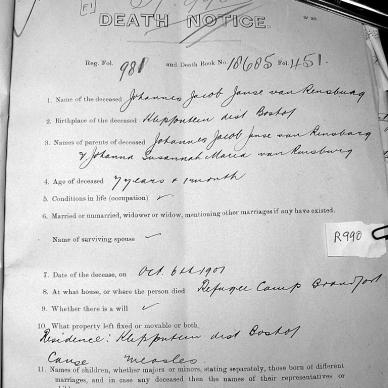 DEATH NOTICE.
Reg. Fol. 981 and Death Book No. 18685 Fol. 1451.
1. Name of the deceased Johannes Jacob Janse van Rensburg
2. Birthplace of the deceased Klipputein dist Boshof
3. Names of parents of deceased Johannes Jacob Janse van Rensburg
& Johanna Susannah Maria van Rensburg
4. Age of deceased 7 years + 1 month
5. Conditions in life (occupation)
6. Married or unmarried, widower or widow, mentioning other marriages if any have existed.
Name of surviving spouse
R990
7. Date of the decease, on Oct. 6th 1901
8. At what house, or where the person died Refugee Camp Brandfort
9. Whether there is a will
10. What property left fixed or movable or both.
Residence: Klipputein dist Boshof
Cause Measles
11. Names of children, whether majors or minors, stating separately, those born of different
marriages, and in case any deceased then the names of their representatives or